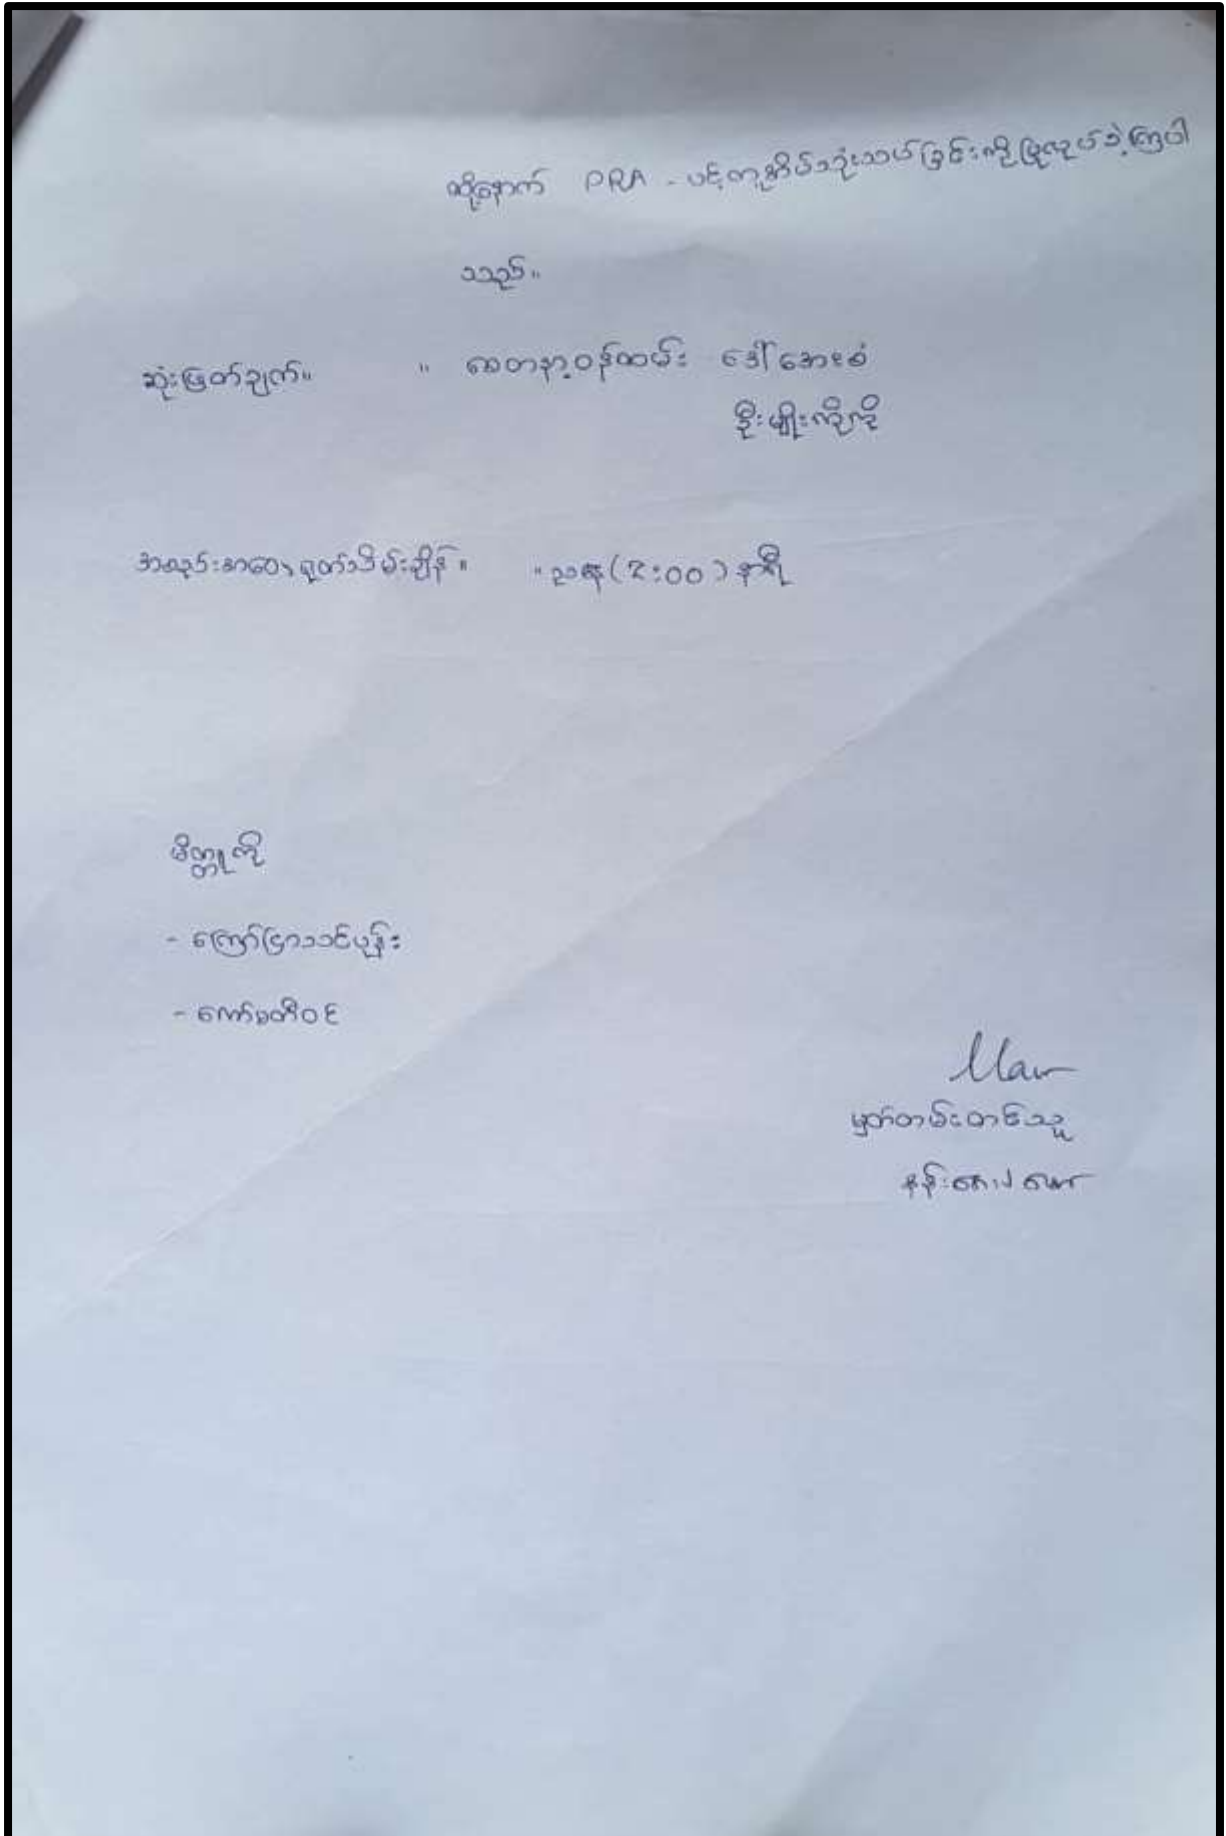 ထို့နောက် PRA - ပင့်ကူအိမ်သုံးသပ်ခြင်းကို ပြုလုပ်ခဲ့ကြပါ
သည်။
ဆုံးဖြတ်ချက်။ ။ စေတနာ့ဝန်ထမ်း ဒေါ်အေးစံ
ဦးမျိုးကိုကို
အစည်းအဝေး ရုတ်သိမ်းချိန်။ ။ ညနေ (2:00) နာရီ
မိတ္တူကို
- ကြော်ငြာသင်ပုန်း
- ကော်မတီဝင်
မှတ်တမ်းတင်သူ